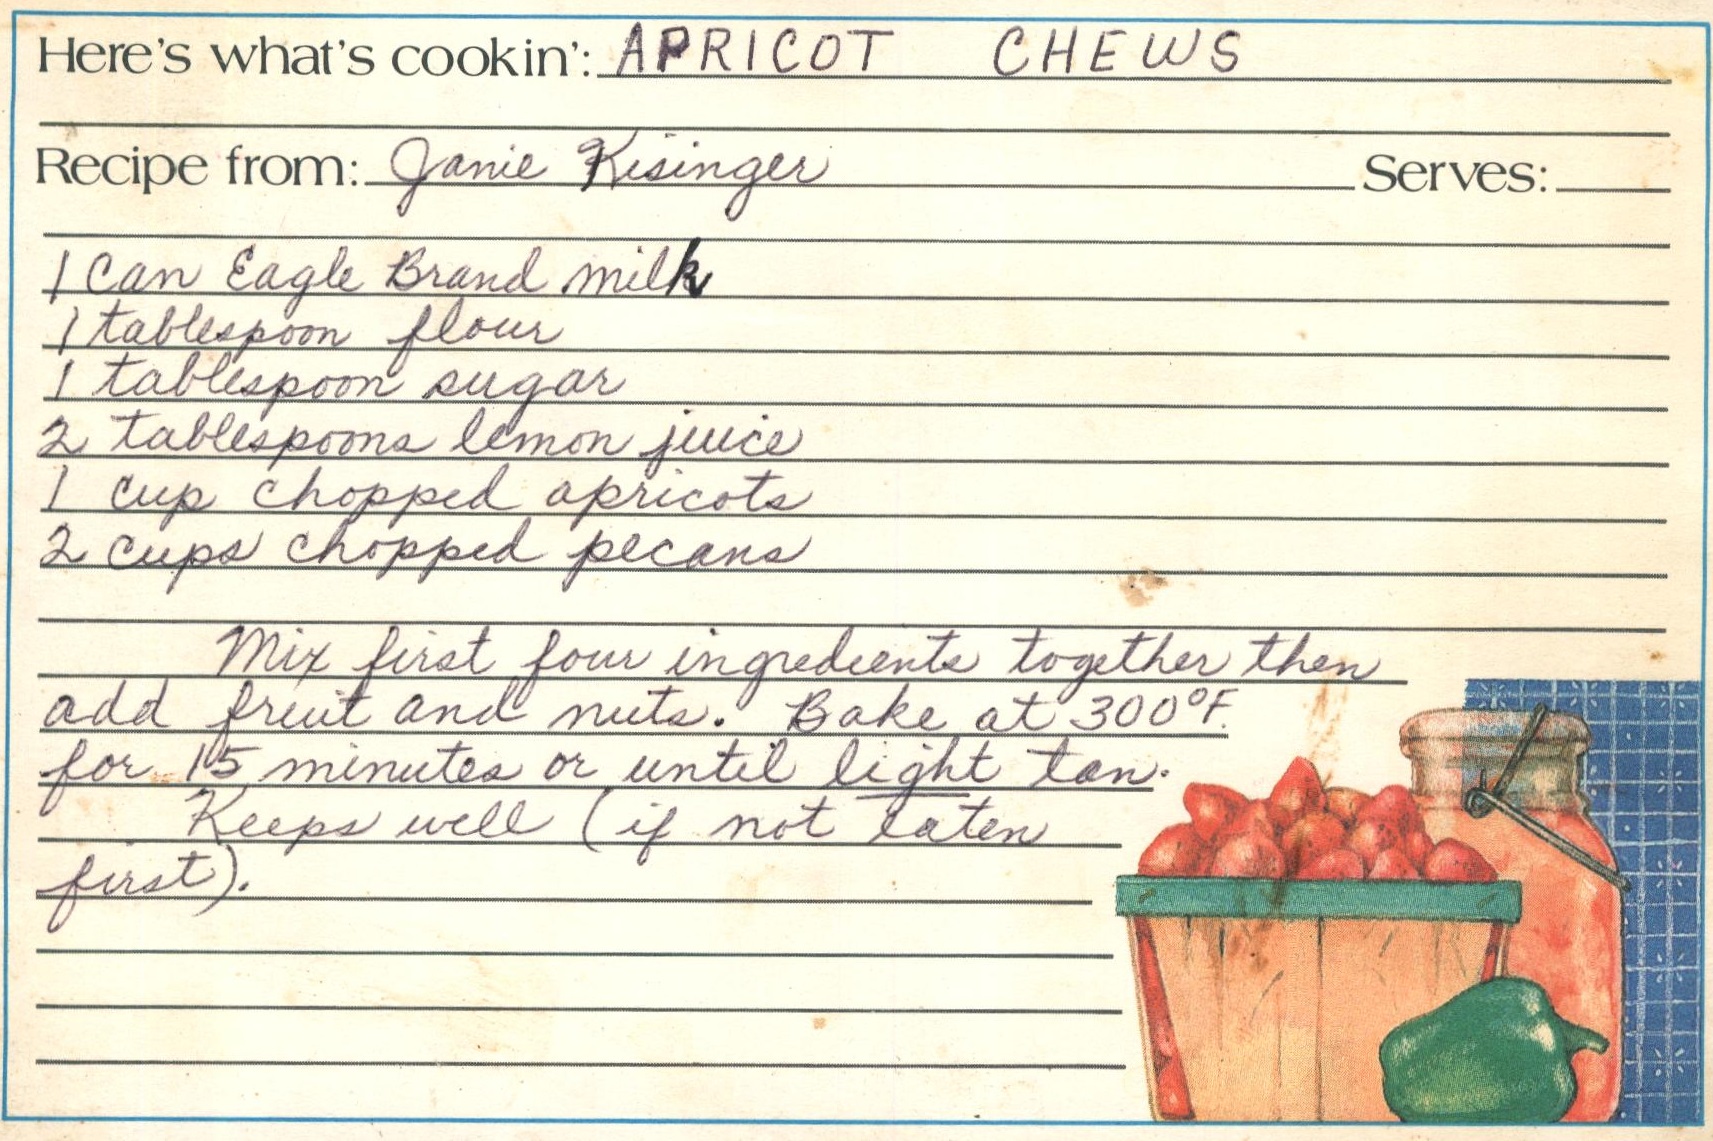 Here's what's cookin': APRICOT CHEWS
Recipe from: Janie Kisinger Serves:
1 Can Eagle Brand milk
1 tablespoon flour
1 tablespoon sugar
2 tablespoons lemon juice
1 cup chopped apricots
2 cups chopped pecans
Mix first four ingredients together then
add fruit and nuts. Bake at 300°F.
for 15 minutes or until light tan.
Keeps well (if not eaten
first).